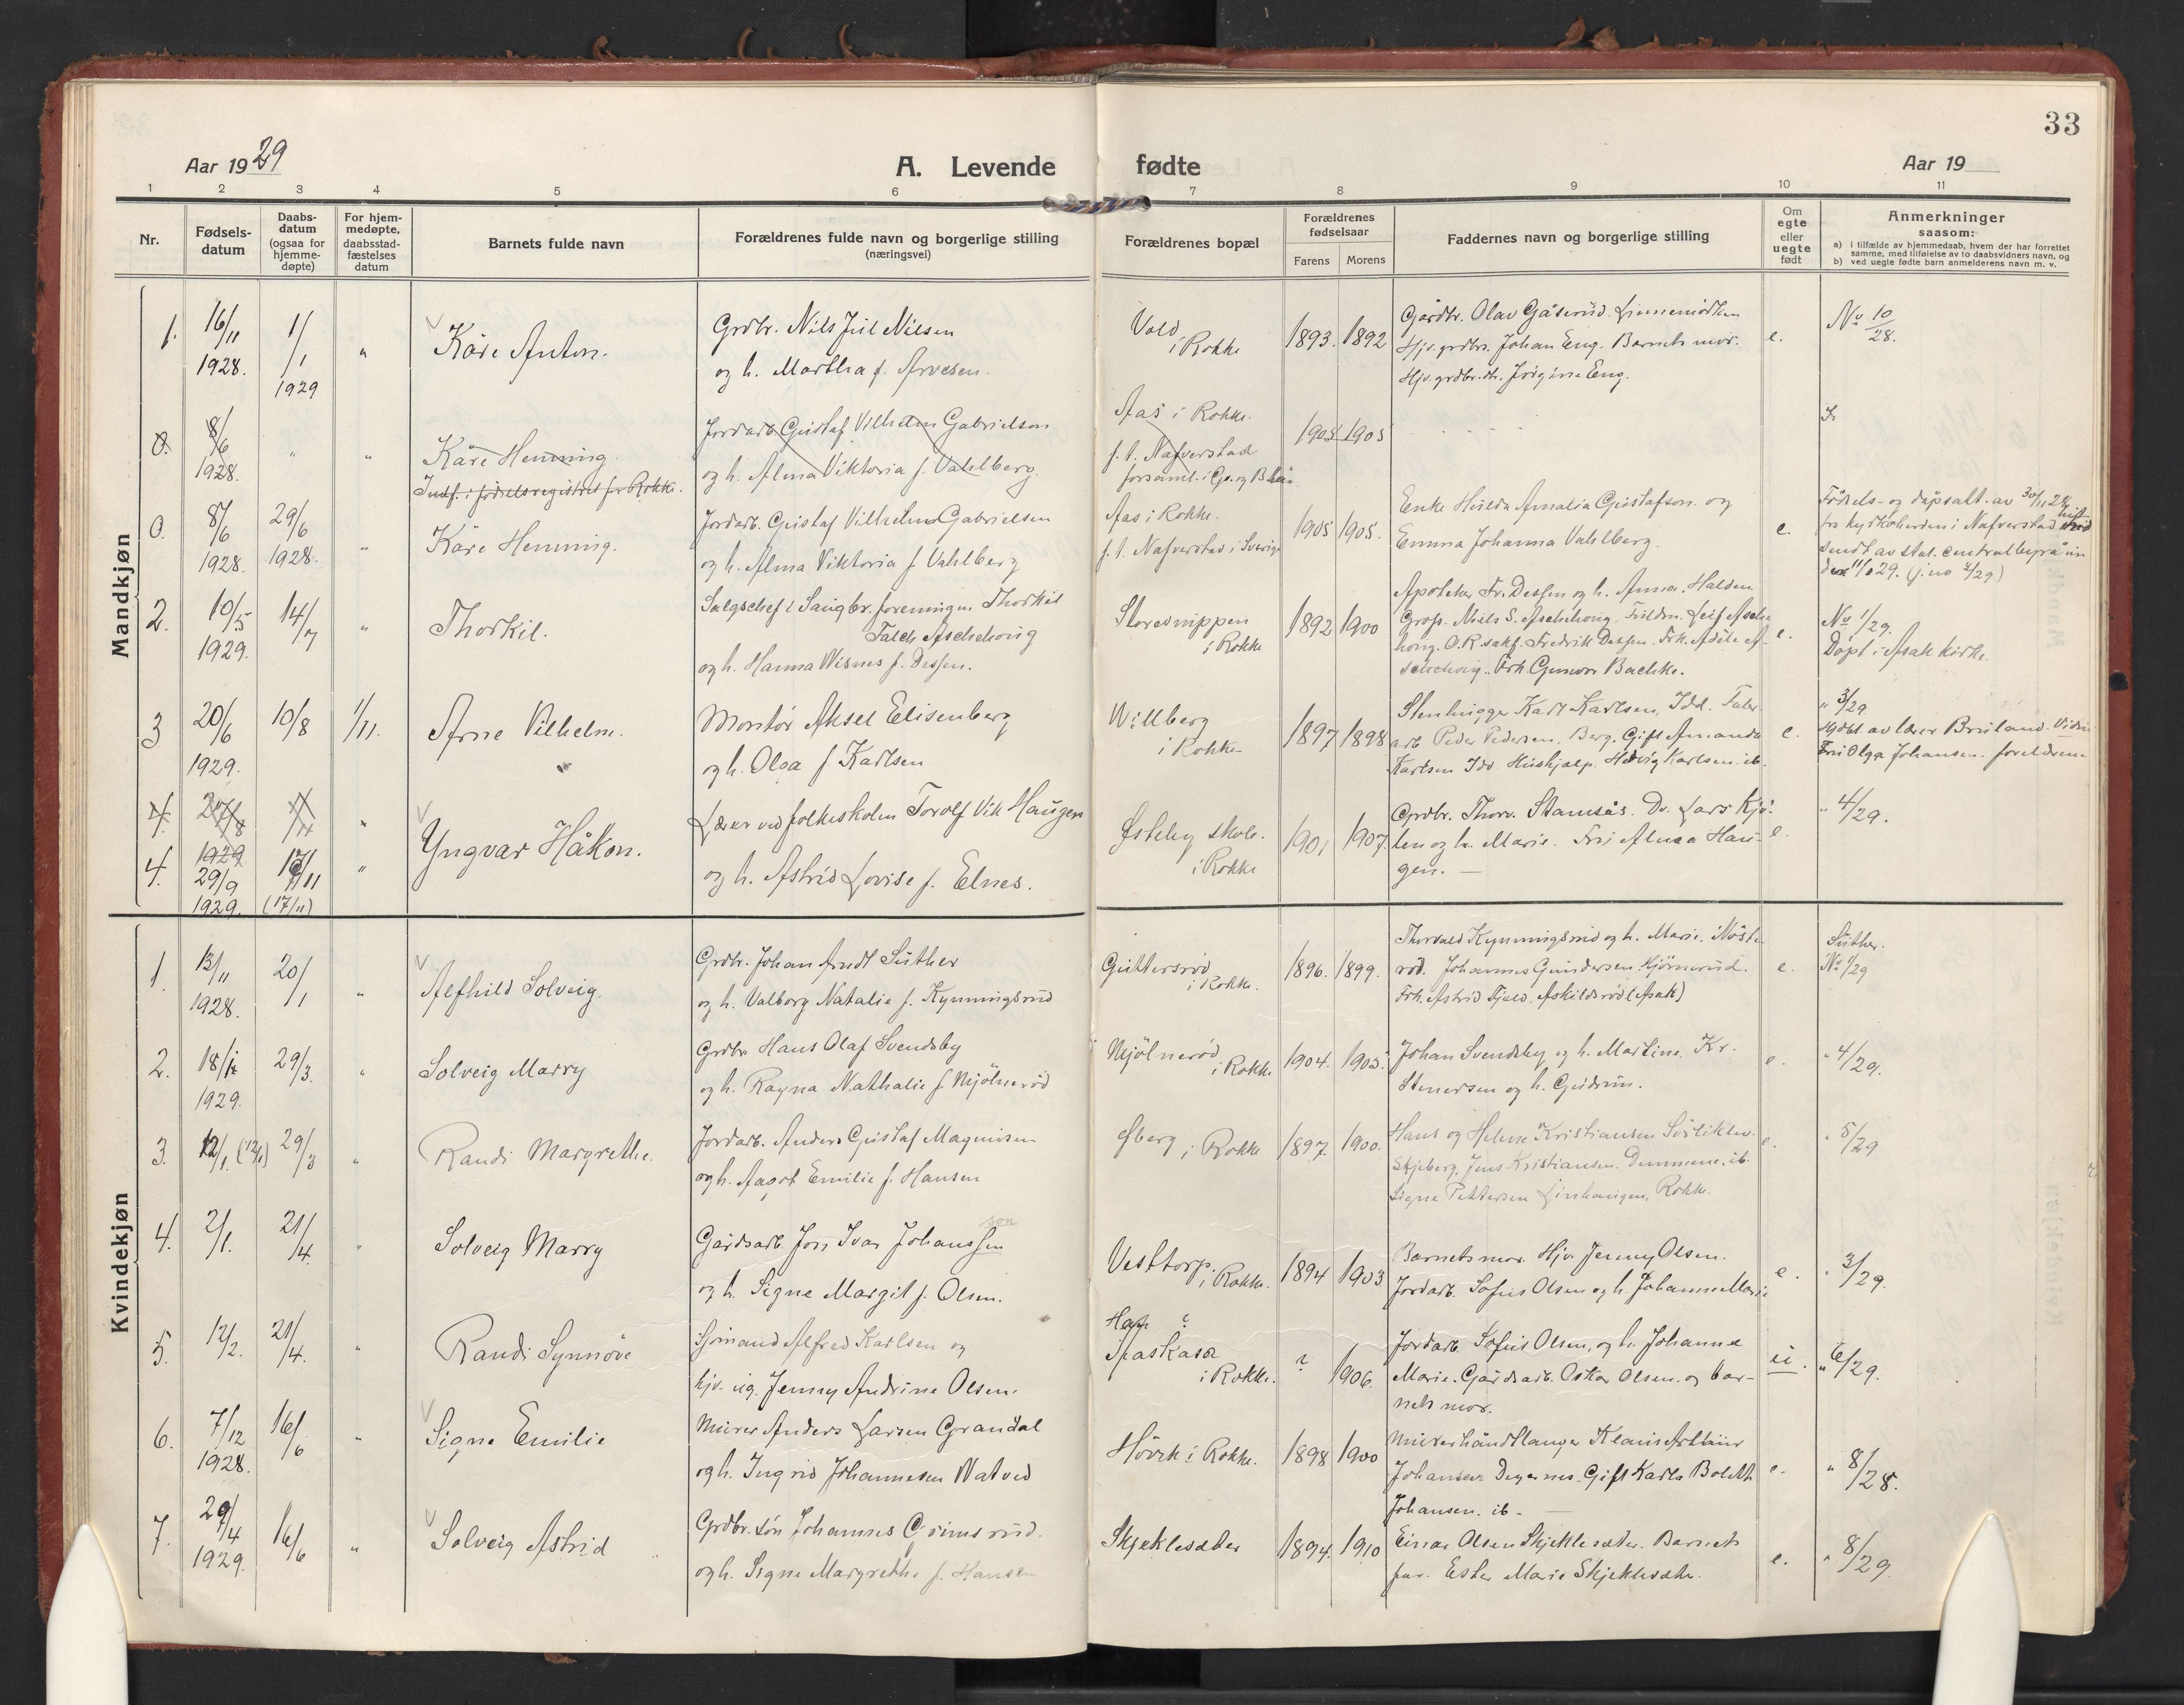 33
Aar 1929
A. Levende fødte
Aar 19
1 2 3 4 5 6 7 8 9 10 11
Nr.
Fødsels-
datum
Daabs-
datum
(ogsaa for
hjemme-
døpte)
For hjem-
medøpte,
daabsstad-
fæstelses
datum
Barnets fulde navn
Forældrenes fulde navn og borgerlige stilling
(næringsvei)
Forældrenes bopæl
Forældrenes
fødselsaar
Farens Morens
Faddernes navn og borgerlige stilling
Om
egte
eller
uegte
født
Anmerkninger
saasom:
a) i tilfælde av hjemmedaab, hvem der har forrettet
samme, med tilføielse av to daabsvidners navn, og
b) ved uegte fødte barn anmelderens navn m. v.
Mandkjøn
1. 16/11 1928. 1/1 1929 " Kåre Anton.
Grdbr. Nils Juul Nilsen
og h. Martha f. Arvesen.
Vold
i Rokke
1893. 1892
Gårdbr. Olav Gåserud.
Hjv. grdbr. Johan Eng. Barnets mor.
Hjv. grdbr. dtr. Jørgine Eng.
e.
No 10/28.
0. 8/6 1928. " " Kåre Henning.
Indf. i fødselsregistret for Rokke.
Jordarb. Gustaf Vilhelm Gabrielson
og h. Alma Viktoria f. Vahlberg.
Aas i Rokke.
f. t. Nafverstad
forsaml. i Gø. og Bhus
1905 1905
0. 8/6 1928. 29/6 1928. " Kåre Henning.
Jordarb. Gustaf Vilhelm Gabrielsen
og h. Alma Viktoria f. Vahlberg
Aas i Rokke.
f. t. Nafverstad i Sverige
1905 1905.
Enke Hulda Amalia Gustafson og
Emma Johanna Vahlberg.
e.
Fødels- og dåpsatt. av 30/11 28
fra kyrkoherden i Nafverstad
sendt av stat. centralbyrå
11/1 29. (j. no 4/29)
2. 10/5 1929. 14/7 " Thorkil.
Salgschef i Saugbr. foreningen Thorkil
Falch Aschehoug
og h. Hanna Wisnes f. Dessen.
Storesnippen
i Rokke
1892 1900
Apoteker Fr. Dessen og h. Anna, Halden.
Gross. Niels S. Aschehoug. Leif Asche
houg. O.R.sakf. Fredrik Dessen. Frk. Adele A-
schehoug. Frk. Gunvor Bachke.
e.
No 1/29.
Døpt i Asak kirke.
3 20/6 1929. 10/8 1/11. Arne Vilhelm.
Montør Aksel Elisenberg
og h. Olga f. Karlsen
Willberg
i Rokke
1897 1898
Stenhugger Karl Karlsen, Idd. Fabr.
arb. Peder Pedersen, Berg. Gift Amanda
Karlsen Idd. Hushjælp. Hedvig Karlsen ib.
e.
" 3/29
Hjdbt. av lærer Bruland. Vidn.
Fru Olga Johansen. foreldrene
4. 27/8 1929 "
4. 29/9 1929. 17/11 (17/11) " Yngvar Håkon.
Lærer ved folkeskolen Torolf Vik Haugen
og h. Astrid Lovise f. Elnes.
Østeby skole.
i Rokke
1901 1907.
Grdbr. Thorv. Stamsås. Do. Lars Kjø-
len og h. Marie. Fru Alma Hau-
gen. —
e.
" 4/29.
Kvindekjøn
1. 13/11 1928. 20/1 " Alfhild Solveig.
Grdbr. Johan Arndt Suther
og h. Valborg Natalie f. Kynningsrud
Guttersrød
i Rokke.
1896. 1899.
Thorvald Kynningsrud og h. Marie.
rød. Johannes Gundersen Kjørnerud.
Frk. Astrid Fjeld, Askildsrød (Asak)
e.
Suther.
No 1/29
2. 18/12 1929. 29/3. " Solveig Marry
Grdbr. Hans Olaf Svendsby
og h. Ragna Nathalie f. Mjølnerød
Mjølnerød
i Rokke
1904. 1905.
Johan Svendsby og h. Martine. Kr.
Stenersen og h. Gudrun.
e.
" 4/29.
3. 12/1. (12/1) 29/3 " Randi Margrethe.
Jordarb. Anders Gustaf Magnusen
og h. Aagot Emilie f. Hansen
Øberg i Rokke
1897. 1900.
Hans og Helene Kristiansen
Skjeberg, Jens Kristiansen. ib.
Signe Pettersen Linhaugen, Rokke.
e.
" 5/29
4. 2/1. 21/4. " Solveig Marry
Gårdsarb. Jon Ivar Johanssen
son
og h. Signe Margit f. Olsen.
Vesttorp.
i Rokke.
1894 1903
Barnets mor. Hjv. Jenny Olsen.
Jordarb. Sofus Olsen og h. Johanne Marie
e.
" 3/29.
5. 12/2. 21/4. " Randi Synnøve
Sjømand Alfred Karlsen og
hjv. ug. Jenny Andrine Olsen.
?
Aaskasa
i Rokke.
? 1906.
Jordarb. Sofus Olsen, og h. Johanne
Marie. Gårdsarb. Oskar Olsen. og bar-
nets mor.
u.
" 6/29.
6. 7/12 1928. 16/6 " Signe Emilie
Murer Anders Larsen Grandal
og h. Ingrid Johannesen Watved
Høvik i Rokke.
1898 1900
Murerhåndlanger Klaus Arthur
Johansen Degernes. Gift Karla Bolette
Johansen. ib. —
e.
" 8/28.
7. 29/4 1929. 16/6 " Solveig Astrid
Grdbr. søn Johannes Grimsrud.
og h. Signe Margrethe f. Hansen
Skjeklesæter
1894. 1910
Einar Olsen Skjeklesæter. Barnets
far. Ester Marie Skjeklesæter.
e.
" 8/29.